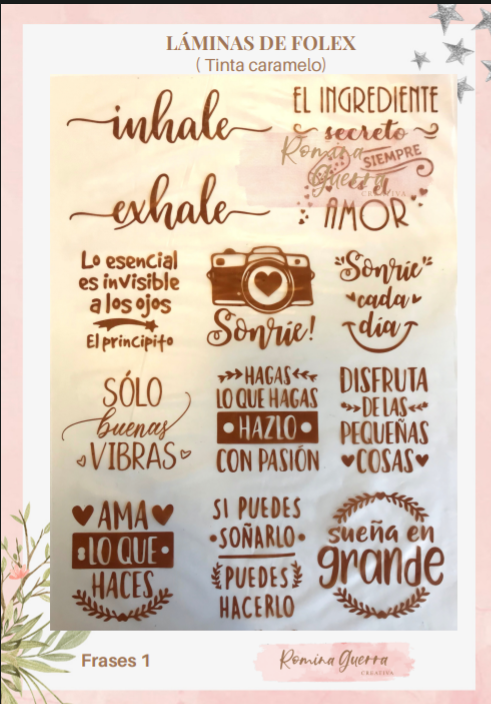 LÁMINAS DE FOLEX
( Tinta caramelo)
inhale
exhale
EL INGREDIENTE
secreto
SIEMPRE
es el
AMOR
Romina
Guerra
CREATIVA
Lo esencial
es invisible
a los ojos
El principito
Sonríe!
"Sonríe"
cada
día
SÓLO
buenas
VIBRAS
HAGAS
LO QUE HAGAS
HAZLO
CON PASIÓN
DISFRUTA
DE LAS
PEQUEÑAS
COSAS
AMA
LO QUE
HACES
SI PUEDES
SOÑARLO
PUEDES
HACERLO
sueña en
grande
Frases 1
Romina Guerra
CREATIVA